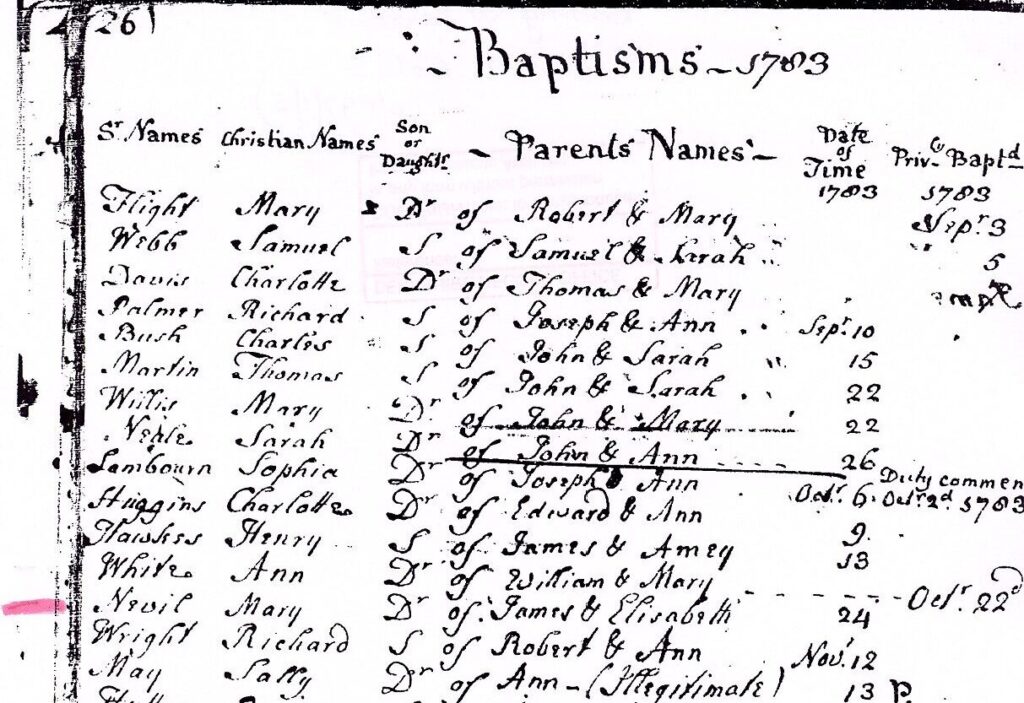 26)
Baptisms - 1783
Sr Names Christian Names Son or Daughtr - Parents Names - Date of Time 1783 Priv. Baptd 1783
Flight Mary Dr of Robert & Mary Sepr 3
Webb Samuel S of Samuel & Sarah 5
Davis Charlotte Dr of Thomas & Mary
Palmer Richard S of Joseph & Ann Sepr 10
Bush Charles S of John & Sarah 15
Martin Thomas S of John & Sarah 22
Willis Mary Dr of John & Mary 22
Neale Sarah Dr of John & Ann 26
Lambourn Sophia Dr of Joseph Ann Octr 6 Duty commen Octr 2d 1783
Huggins Charlotte Dr of Edward & Ann 9
Hawkes Henry S of James & Amey 13
White Ann Dr of William & Mary - - - - Octr 22d
Nevil Mary Dr of James & Elisabeth 24
Wright Richard S of Robert & Ann Novr 12
May Sally Dr of Ann - (Illegitimate) 13 P.